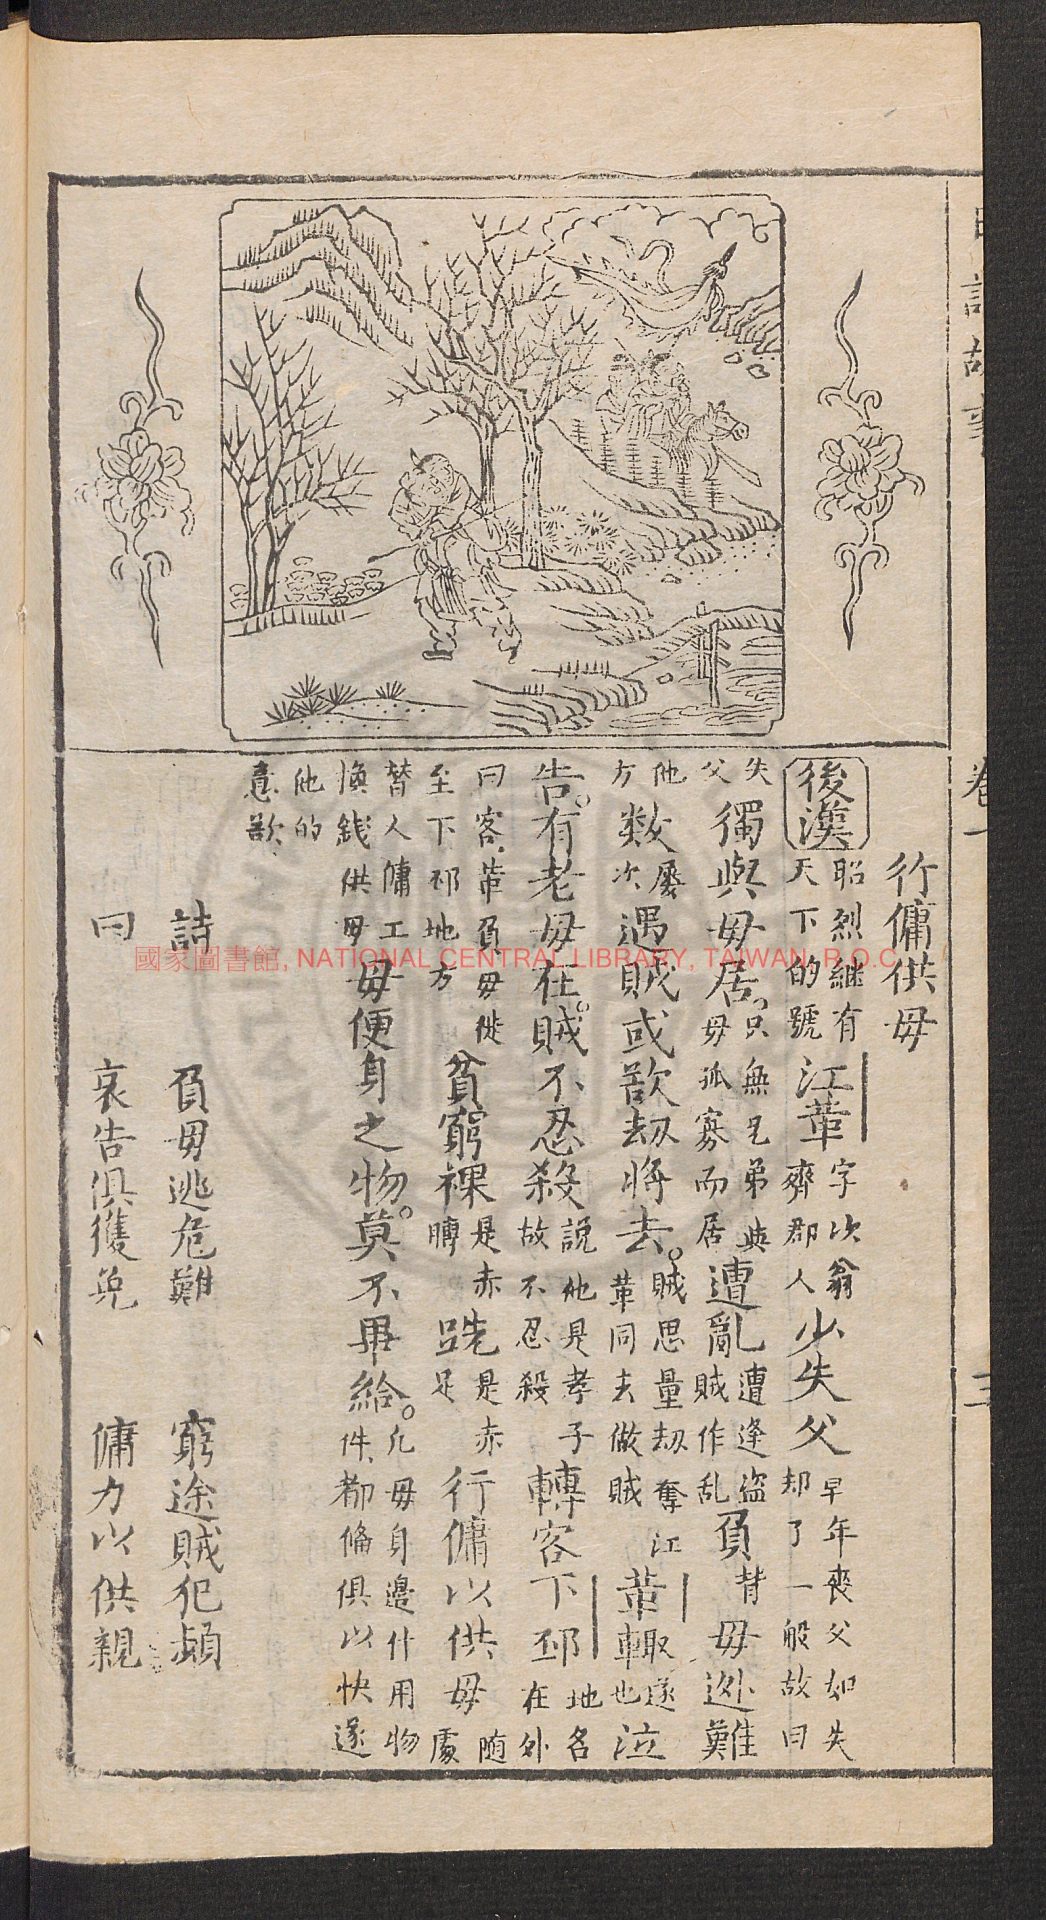 記故事 卷一 三
行傭供母
後漢昭烈継有天下的號江革字次翁齊郡人少失父早年喪父如失却了一般故曰
失父獨與母居只無兄弟與母孤寡而居遭亂遭逢盜賊作乱負背母迯難
他方数屡次遇賊或欲劫將去。賊思量劫奪江革同去做賊革輙遂也泣
告。有老母在。賊不忍殺說他是孝子故不忍殺轉客下邳地名在外
曰客革負母徙至下邳地方貧窮裸是赤膊跣是赤足行傭以供母随處
替人傭工換錢供母母便身之物。莫不畢給。凡母身邊什用物件都俻俱以快遂
他的意欲
詩 負母逃危難 窮途賊犯頻
曰 哀告俱獲免 傭力以供親
國家圖書館, NATIONAL CENTRAL LIBRARY, TAIWAN, R.O.C.